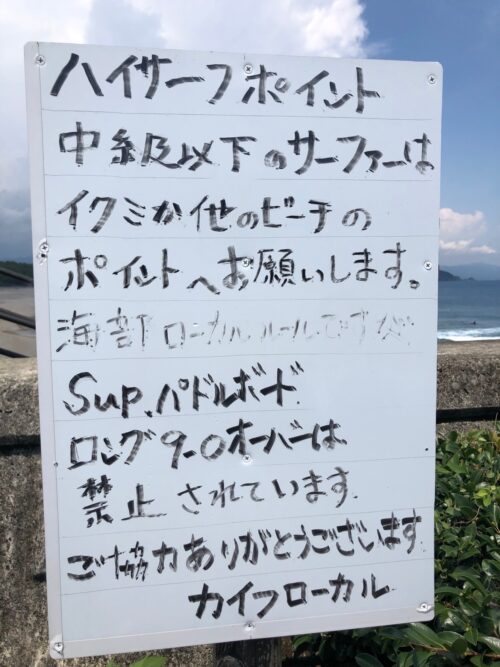 ハイサーフポイント
中級以下のサーファーは
イクミか他のビーチの
ポイントへお願いします。
海部ローカルルールですが
Sup、パドルボード
ロング9-0オーバーは
禁止されています。
ご協力ありがとうございます
カイフローカル